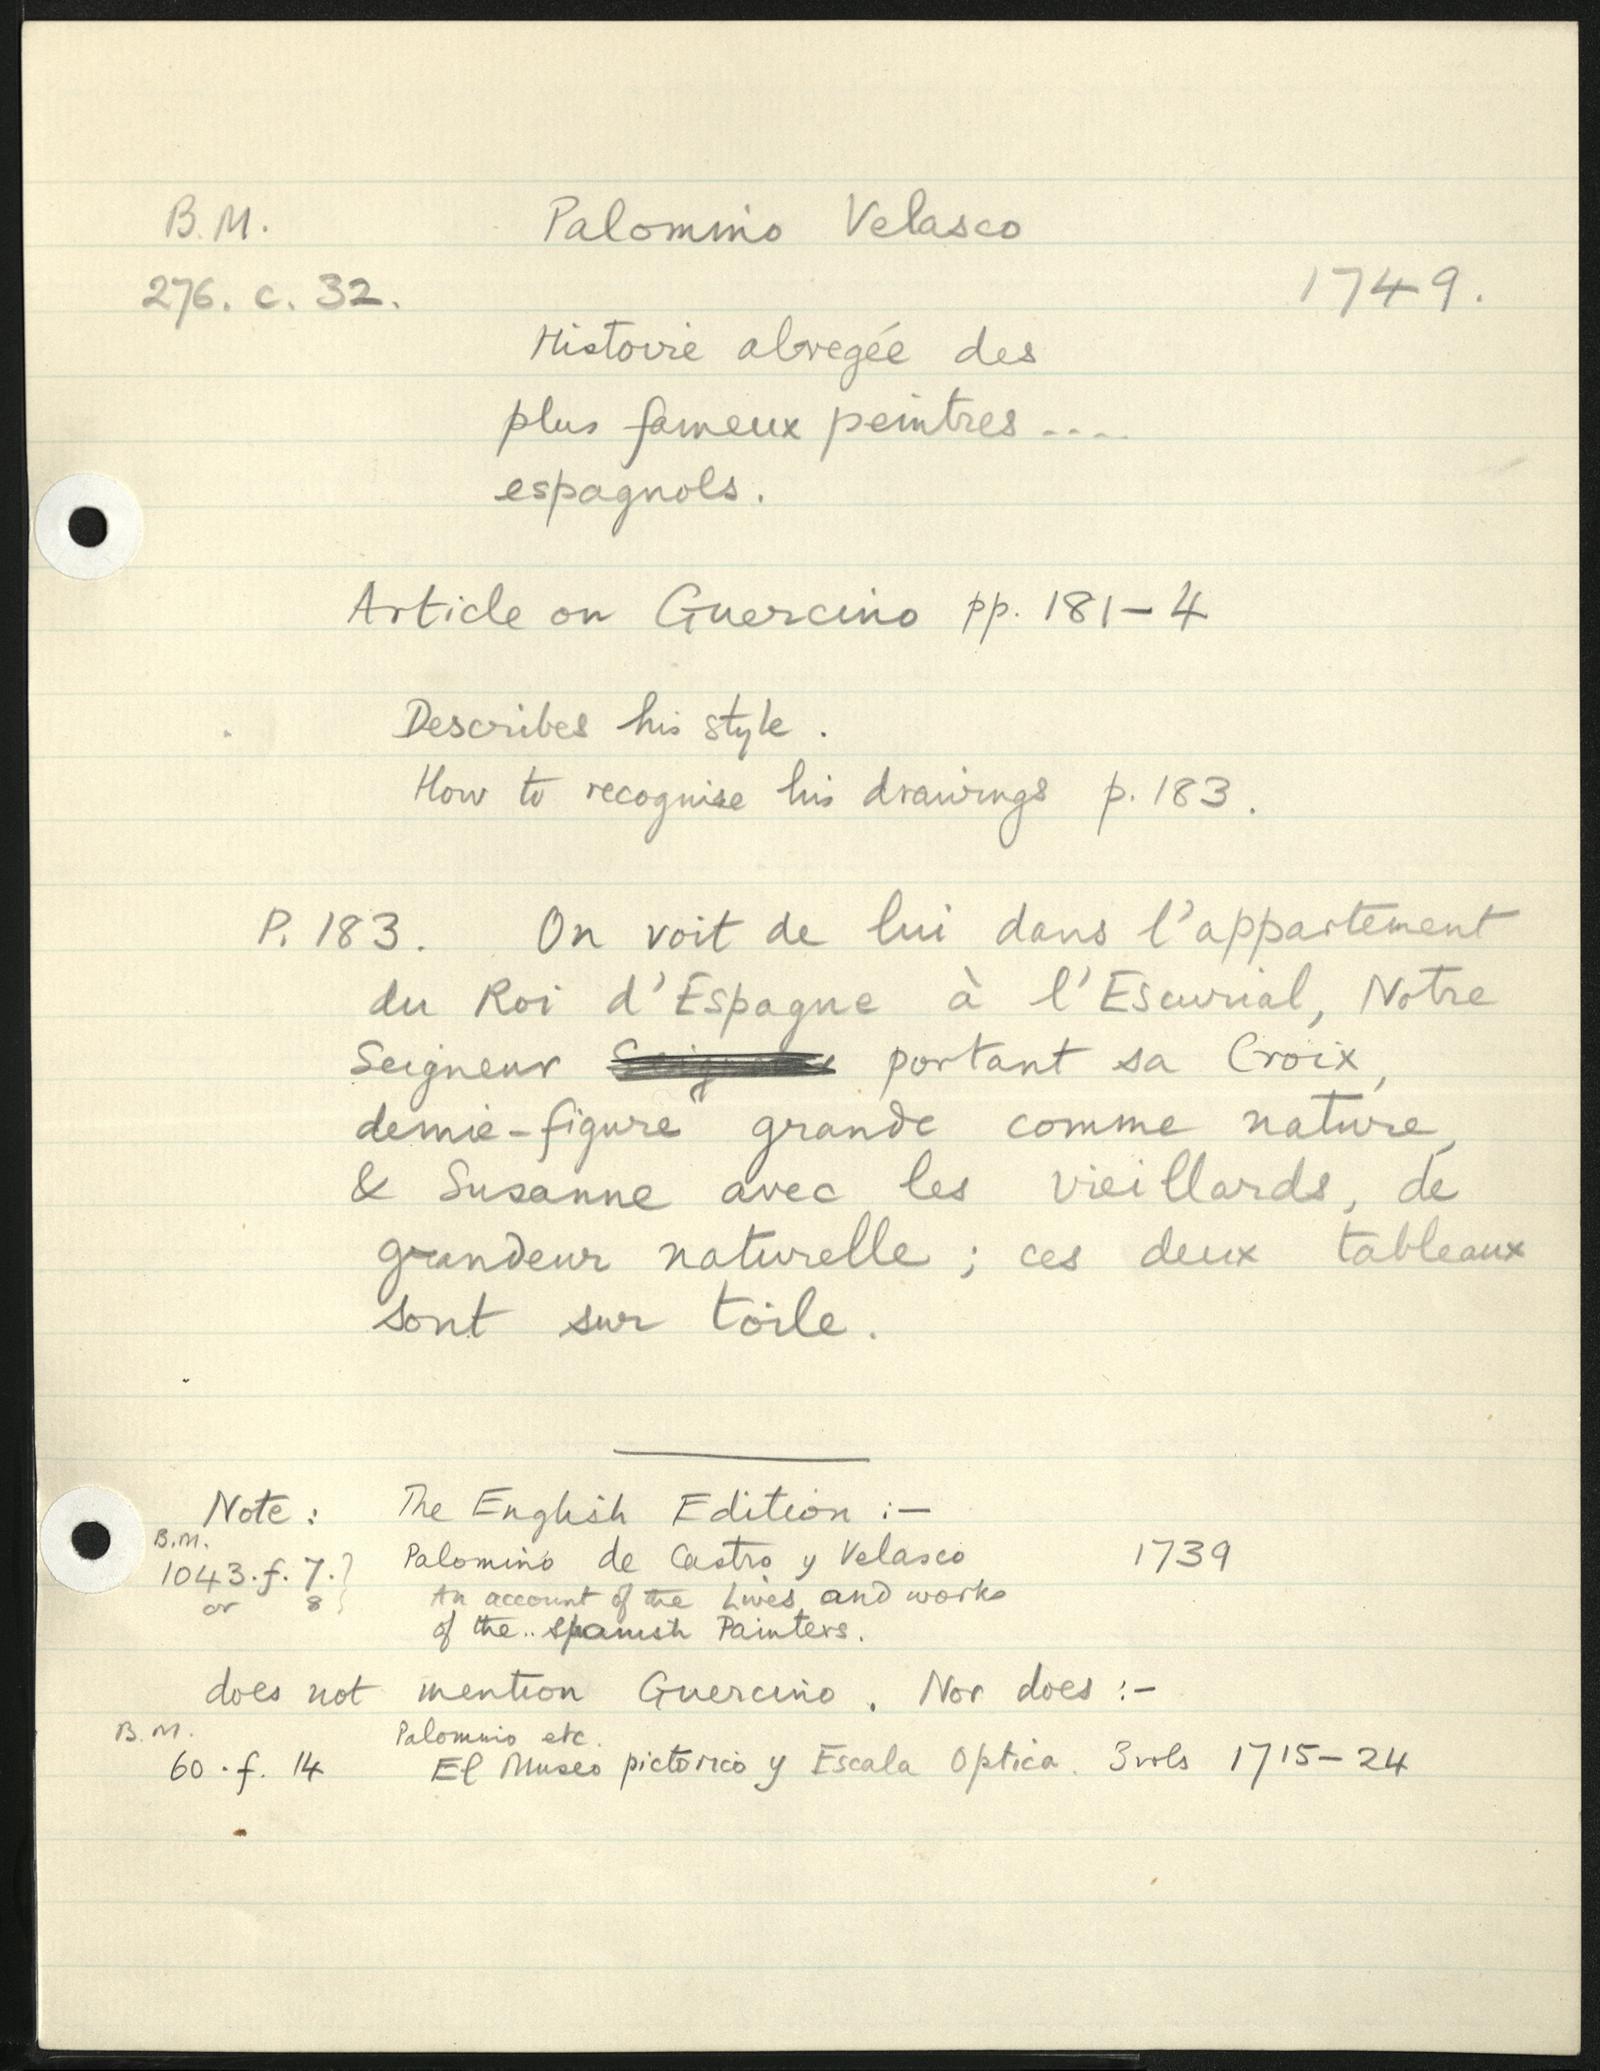 B.M. Palomino Velasco
276. c. 32. 1749.
Histoire abregée des
plus fameux peintres ....
espagnols.
Article on Guercino pp. 181-4
Describes his style.
How to recognise his drawings p. 183.
P. 183. On voit de lui dans l'appartement
du Roi d'Espagne à l'Escurial, Notre
Seigneur portant sa Croix,
demie-figure grande comme nature,
& Susanne avec les vieillards, de
grandeur naturelle ; ces deux tableaux
sont sur toile.
Note : The English Edition :-
B.M.
1043.f.7. Palomino de Castro y Velasco 1739
or 8 An account of the Lives and works
of the .. Spanish Painters.
does not mention Guercino. Nor does :-
B.M. Palomino etc.
60.f.14 El Museo pictorico y Escala Optica. 3 vols 1715-24